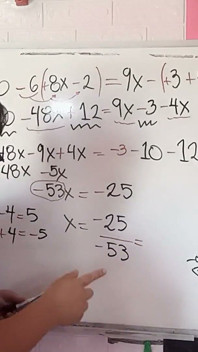 0 - 6(+8x - 2) = 9x - (+3 +
0 - 48x + 12 = 9x - 3 - 4x
48x - 9x + 4x = -3 - 10 - 12
48x - 5x
-53x = -25
-4 = 5
+4 = -5
x = -25
-53 =